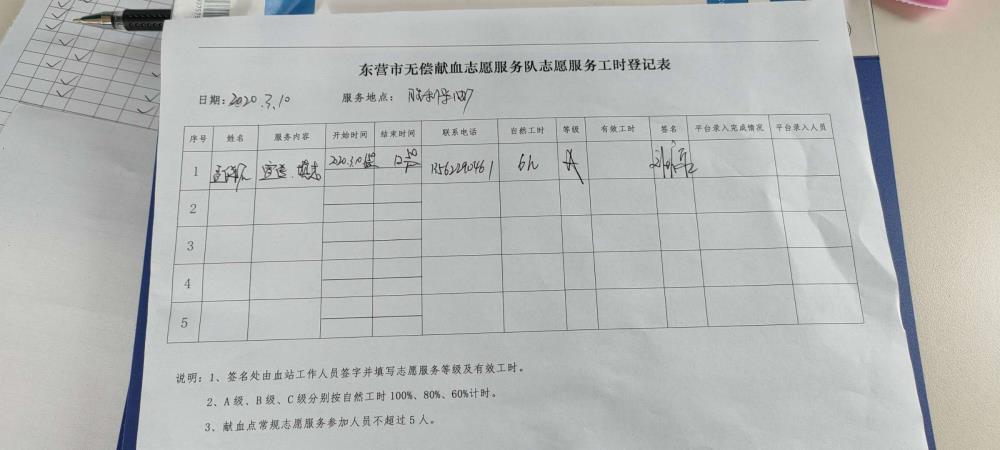 东营市无偿献血志愿服务队志愿服务工时登记表
日期：2020.3.10 服务地点：
序号 姓名 服务内容 开始时间 结束时间 联系电话 自然工时 等级 有效工时 签名 平台录入完成情况 平台录入人员
1 2020.3.10 12:50 13562290461 6h A
2
3
4
5
说明：1、签名处由血站工作人员签字并填写志愿服务等级及有效工时。
2、A级、B级、C级分别按自然工时100%、80%、60%计时。
3、献血点常规志愿服务参加人员不超过5人。